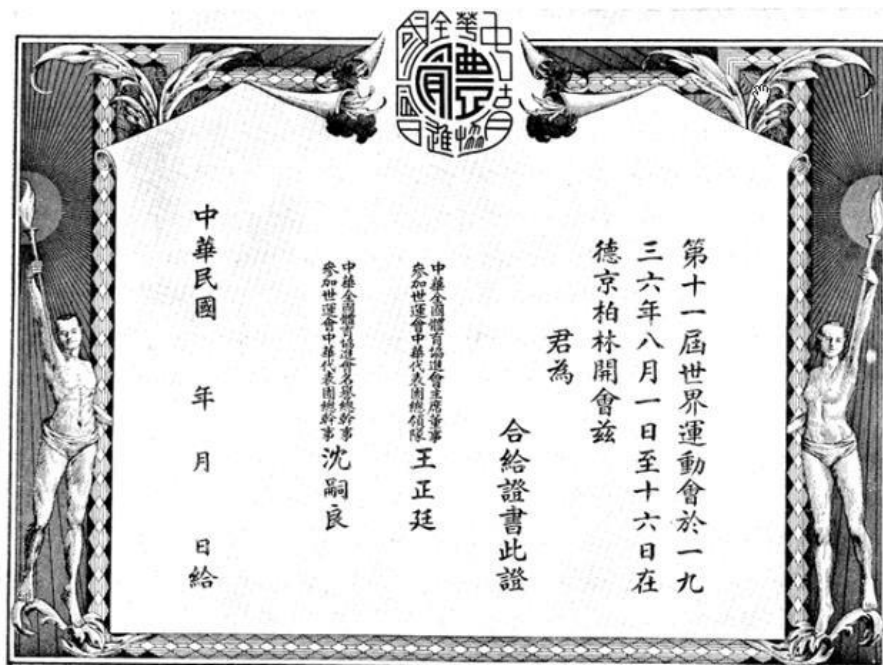 中華全國體育協進會
第十一屆世界運動會於一九
三六年八月一日至十六日在
德京柏林開會茲
君為
合給證書此證
中華全國體育協進會主席董事
參加世運會中華代表團總領隊
王正廷
中華全國體育協進會名譽總幹事
參加世運會中華代表團總幹事
沈嗣良
中華民國 年 月 日給